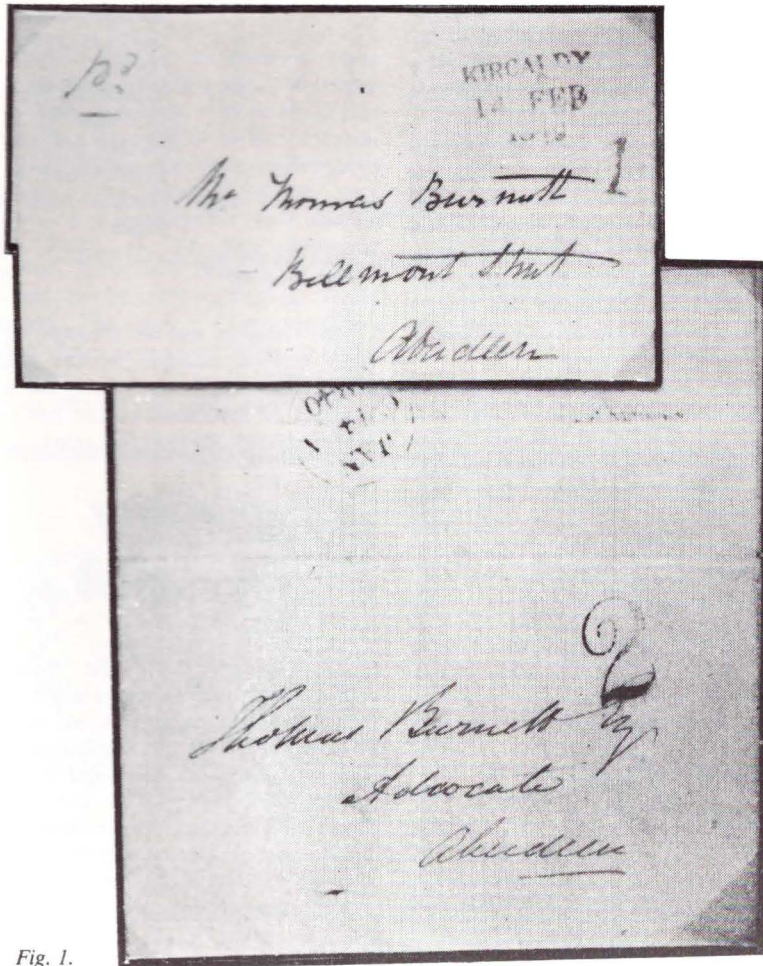 pd
KIRCALDY
14 FEB
1
Mr Thomas Burnett
Bellmont Street
Aberdeen
JAN
2
Thomas Burnett Esq
Advocate
Aberdeen
Fig. 1.